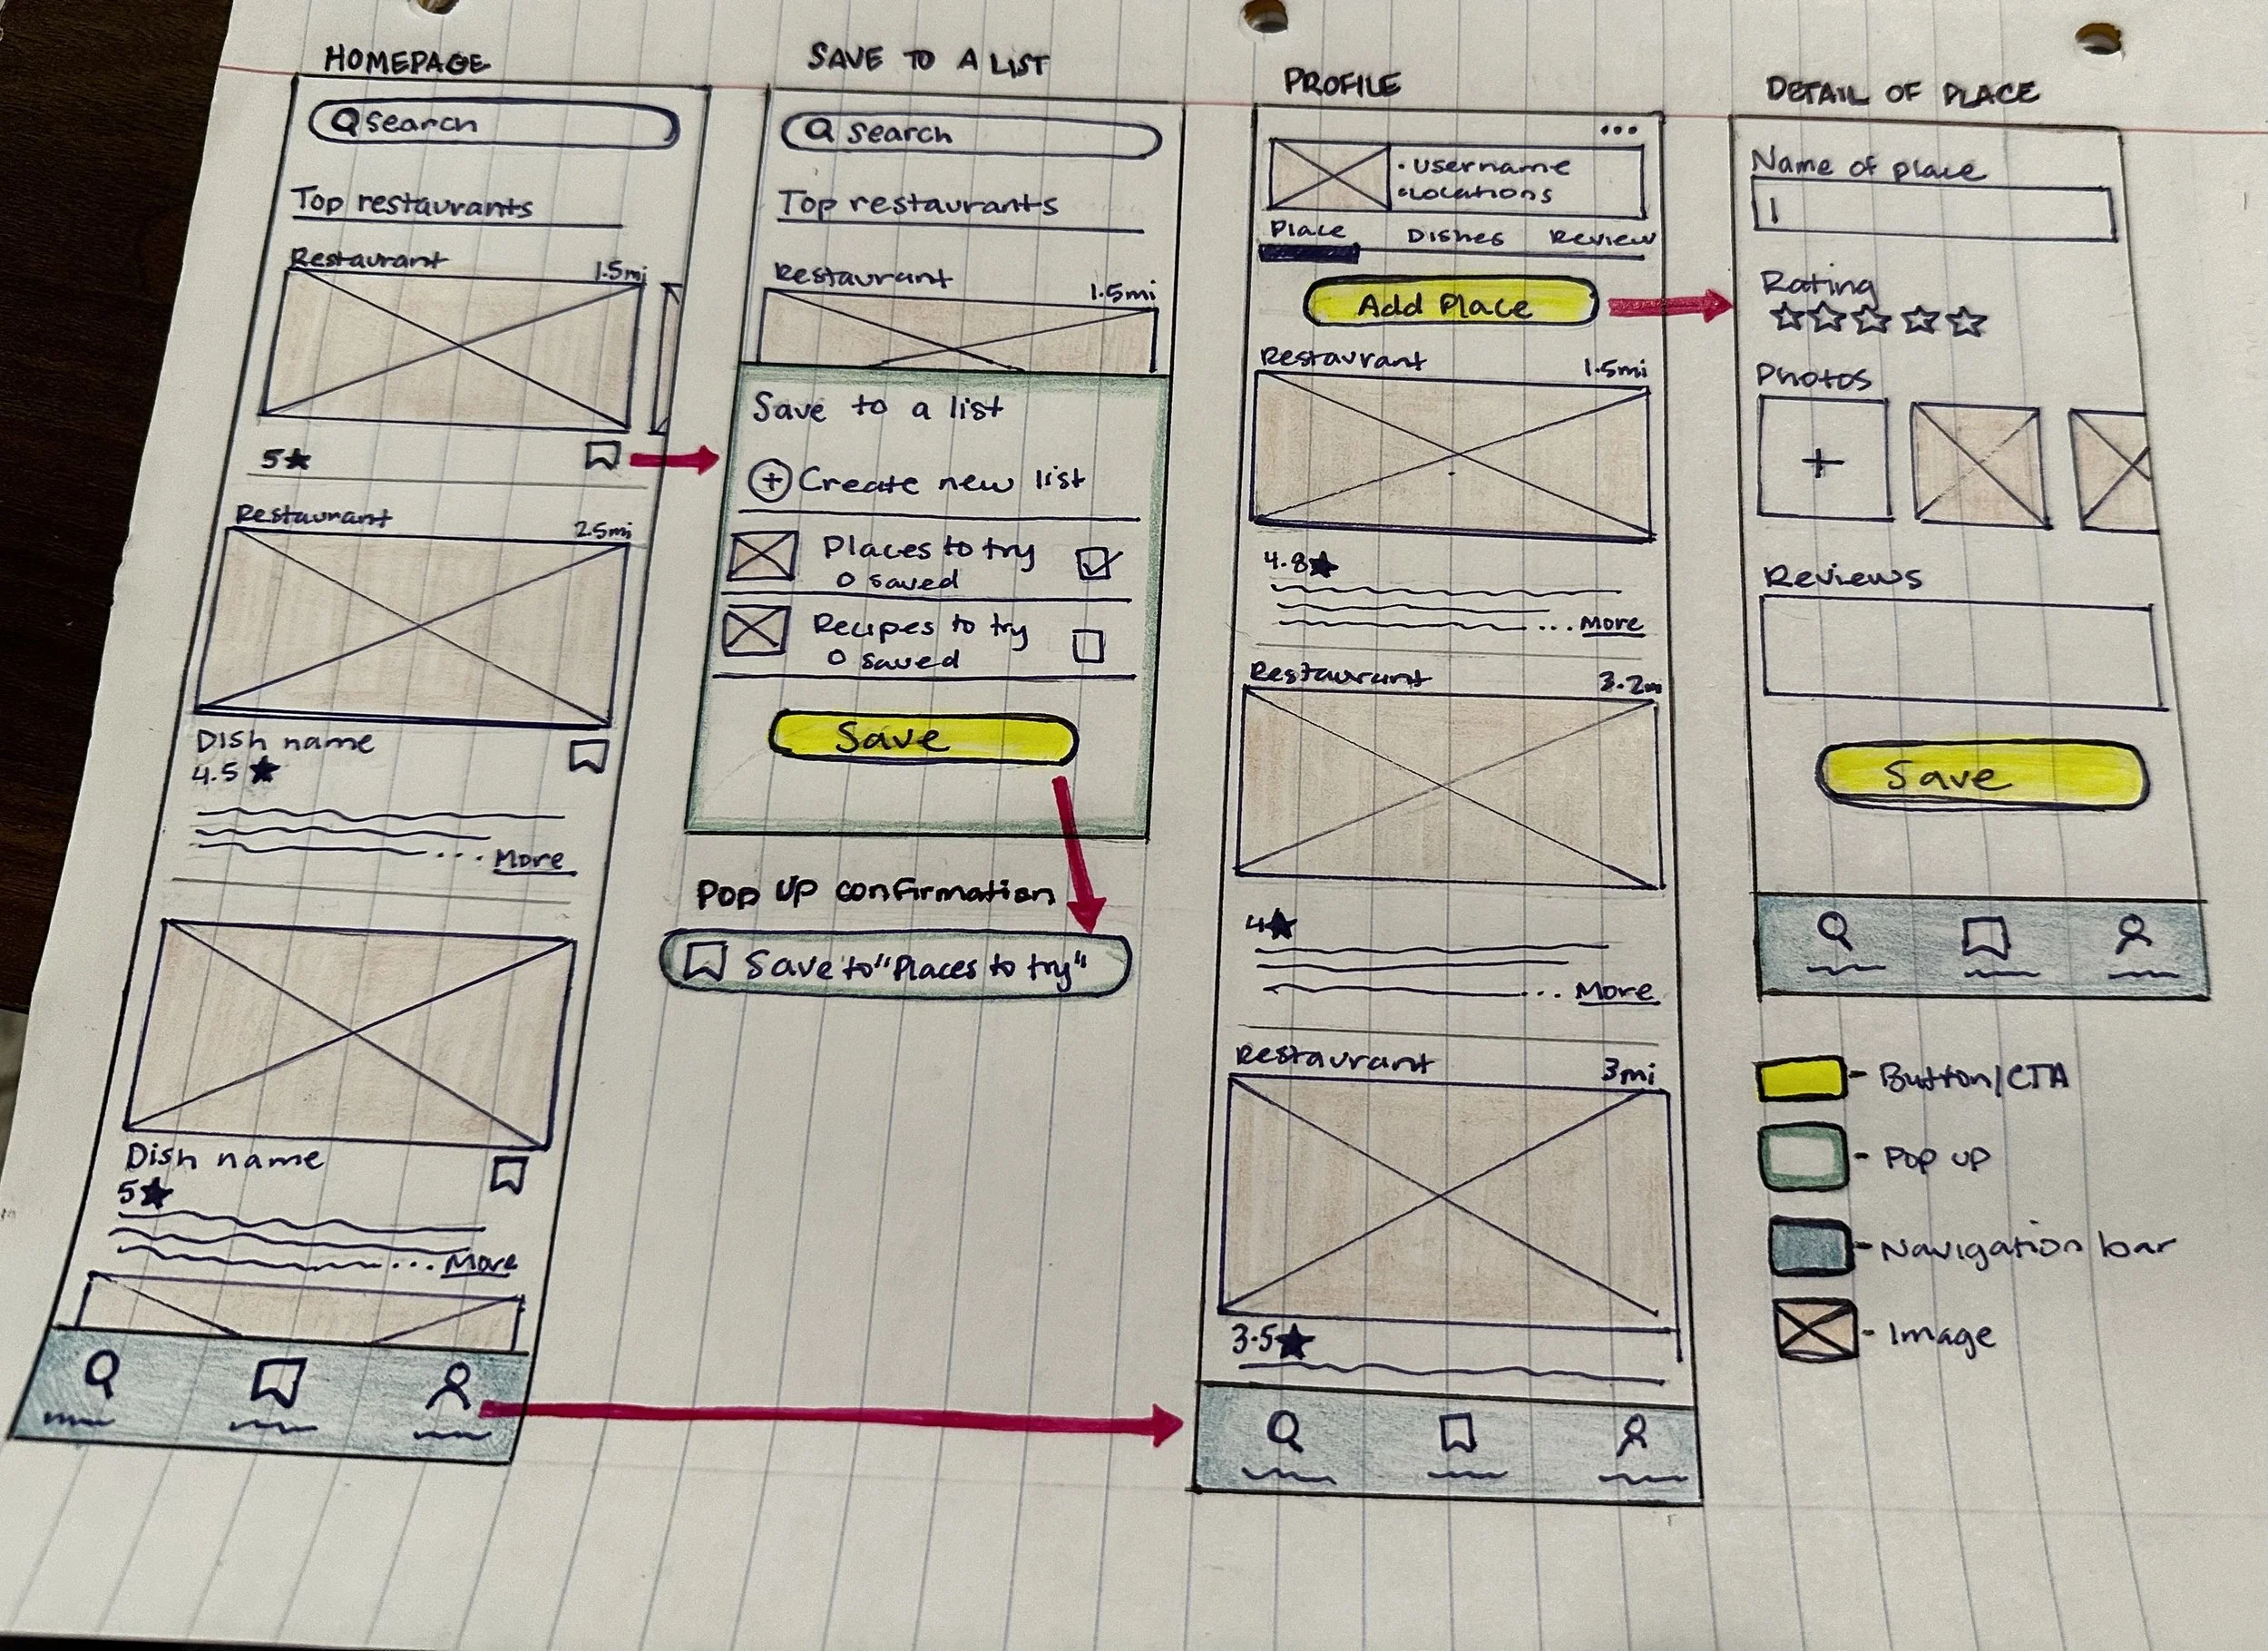 HOMEPAGE
search
Top restaurants
Restaurant 1.5mi
5★
Restaurant 2.5mi
Dish name
4.5 ★
... More
Dish name
5★
... More
SAVE TO A LIST
search
Top restaurants
Restaurant 1.5mi
Save to a list
+ Create new list
Places to try
0 saved
Recipes to try
0 saved
Save
Pop up confirmation
Save to "Places to try"
PROFILE
...
• username
• Locations
Place Dishes Review
Add Place
Restaurant 1.5mi
4.8★
... More
Restaurant 3.2m
4★
... More
Restaurant 3mi
3.5★
DETAIL OF PLACE
Name of place
Rating
☆☆☆☆☆
Photos
+
Reviews
Save
- Button/CTA
- Pop up
- Navigation bar
- Image